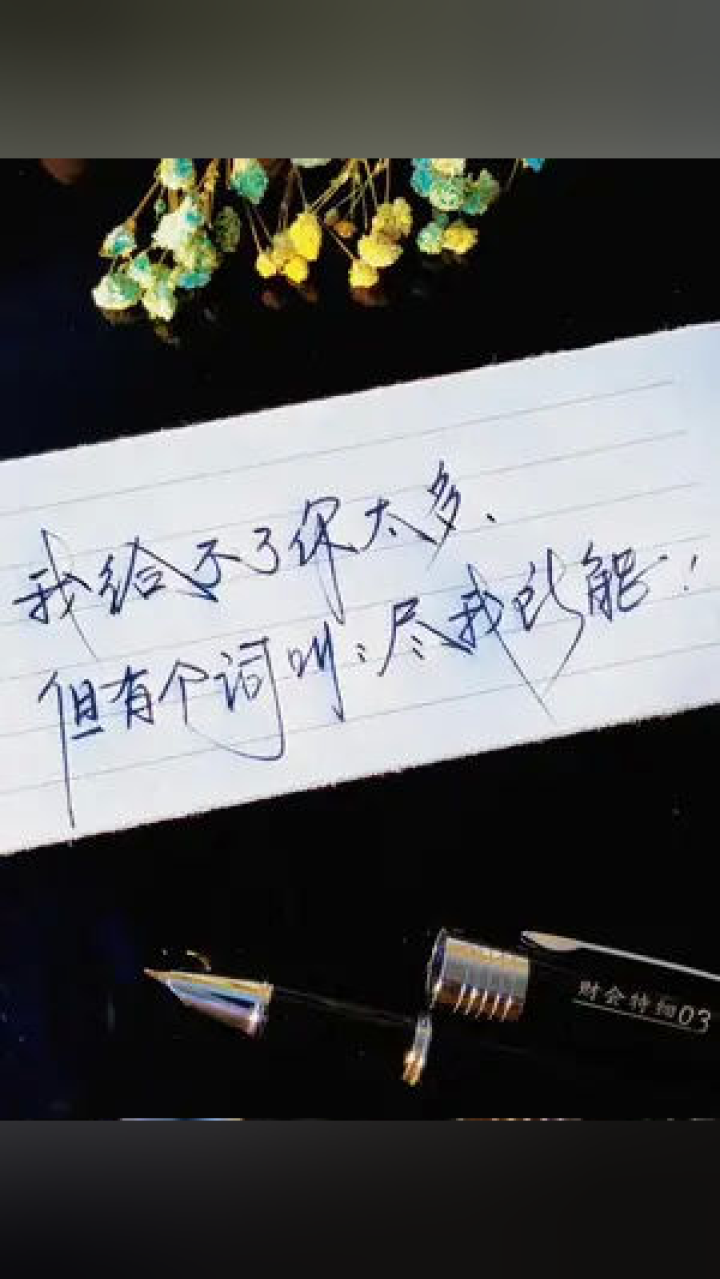 我给不了你太多、
但有个词叫:尽我所能!
财会特细03